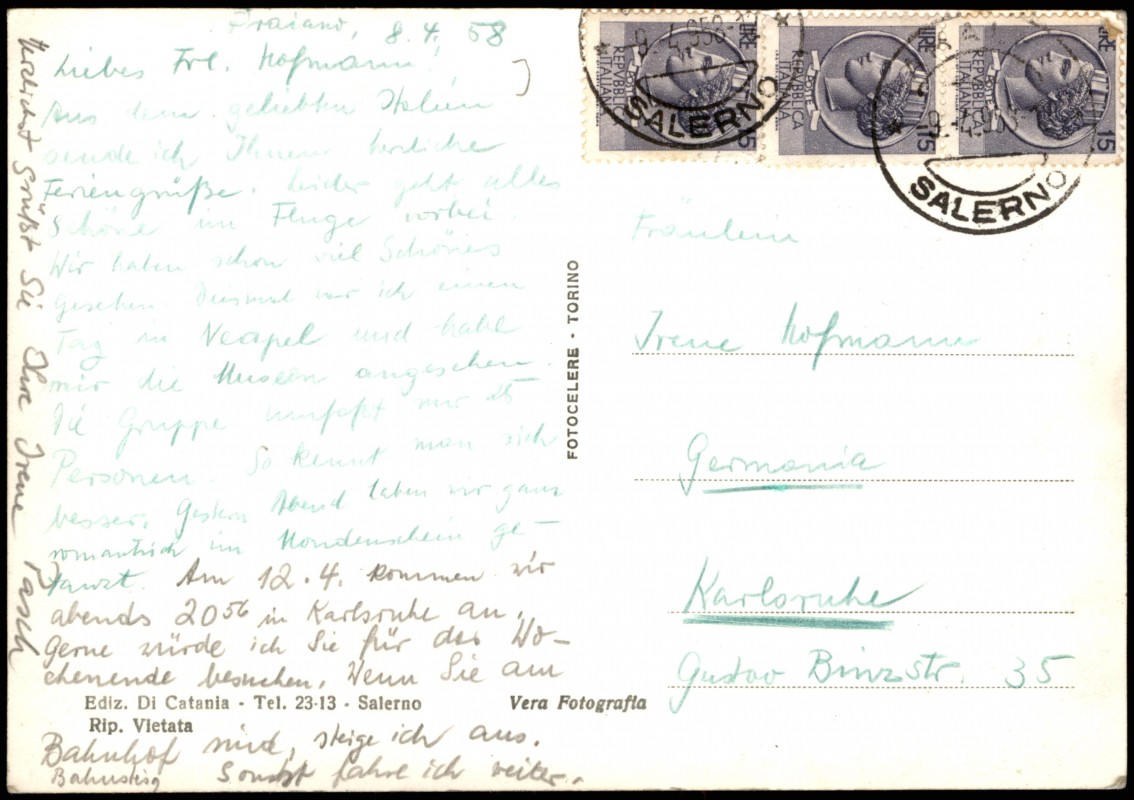 Praiano, 8.4.58
Liebes Frl. Hofmann!
Aus dem geliebten Italien
sende ich Ihnen herzliche
Feriengrüße. Leider geht alles
Schöne im Fluge vorbei.
Wir haben schon viel Schönes
gesehen. Diesmal war ich einen
Tag in Neapel und habe
mir die Museen angesehen.
Die Gruppe umfaßt nur 25
Personen. So kennt man sich
besser. Gestern Abend haben wir ganz
romantisch im Mondenschein ge-
tanzt. Am 12.4. kommen wir
abends 20⁵⁶ in Karlsruhe an.
Gerne würde ich Sie für das Wo-
chenende besuchen. Wenn Sie am
Ediz. Di Catania - Tel. 23-13 - Salerno
Vera Fotografia
Rip. Vietata
Bahnhof sind, steige ich aus.
Bahnsteig
Sonst fahre ich weiter.
Herzlichst grüßt Sie Ihre Irene Pasch
FOTOCELERE - TORINO
LIRE 15
REPVBBLICA
ITALIANA
POSTE
SALERNO
LIRE 15
REPVBBLICA
ITALIANA
POSTE
LIRE 15
REPVBBLICA
ITALIANA
POSTE
SALERNO
Fräulein
Irene Hofmann
Germania
Karlsruhe
Gustav Binzstr. 35